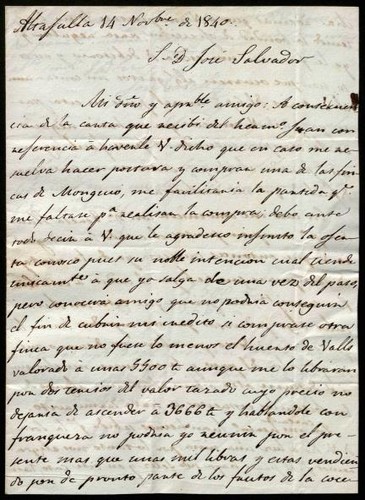 Altafulla 14 Novbre de 1840.
S. D. José Salvador
Mi dño y apble amigo: A consecuen-
cia de la carta que recibi del hermo Juan con
referencia á haverle V. dicho que en caso me re-
suelva hacer postura y comprar una de las fin-
cas de Mongeus, me facilitaria la partida qe
me faltase pa realisar la compra; debo ante
todo decir á V. que le agradesco infinito la ofer-
ta conosco pues su noble intencion cual tiende
unicamte á que yo salga de una vez del paso,
pero conocerá amigo que no podria conseguir
el fin de cubrir mi credito si comprase otra
finca que no fuese lo menos el huerto de Valls
valorado á unas 5500 ℔ aunque me lo libraran
por dos tercios del valor tazado cuyo precio no
dejaria de ascender á 3666 ℔ y hablandole con
franqueza no podria yo reunir por el pre-
sente mas que unas mil libras y estas vendien-
do por de pronto parte de los frutos de la cose-